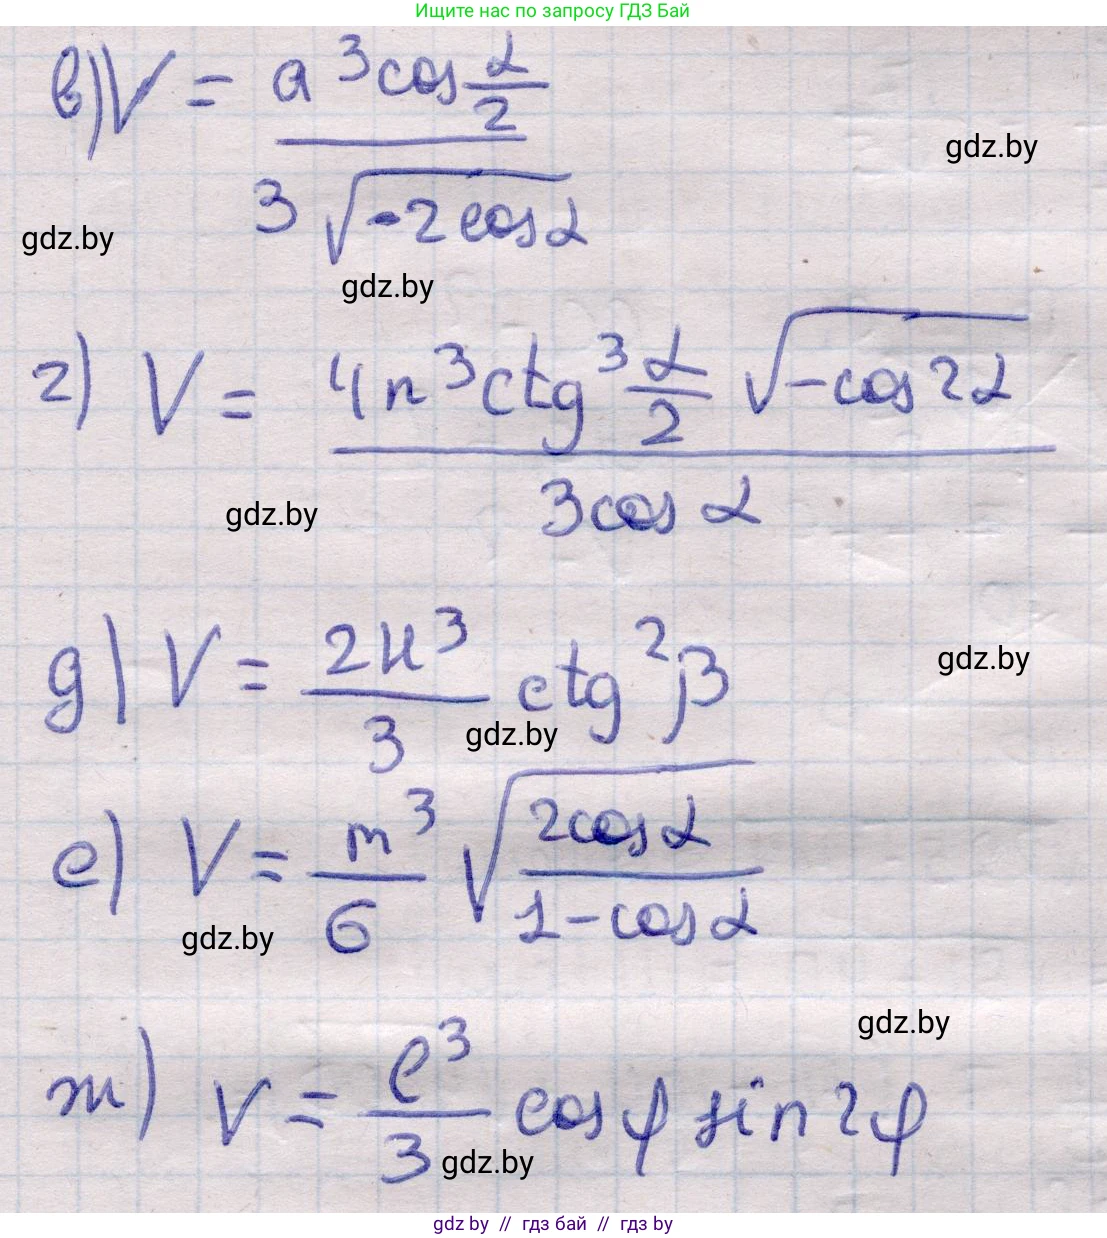 Ищите нас по запросу ГДЗ Бай
в) V = a³cos α/2 / 3√(-2cosα)
gdz.by
gdz.by
gdz.by
г) V = 4n³ctg³ α/2 √(-cos2α) / 3cos α
gdz.by
д) V = 2H³/3 ctg²β
gdz.by
gdz.by
е) V = m³/6 √(2cosα / 1-cosα)
gdz.by
gdz.by
ж) V = l³/3 cosφ sin2φ
gdz.by
gdz by // гдз бай // гдз by